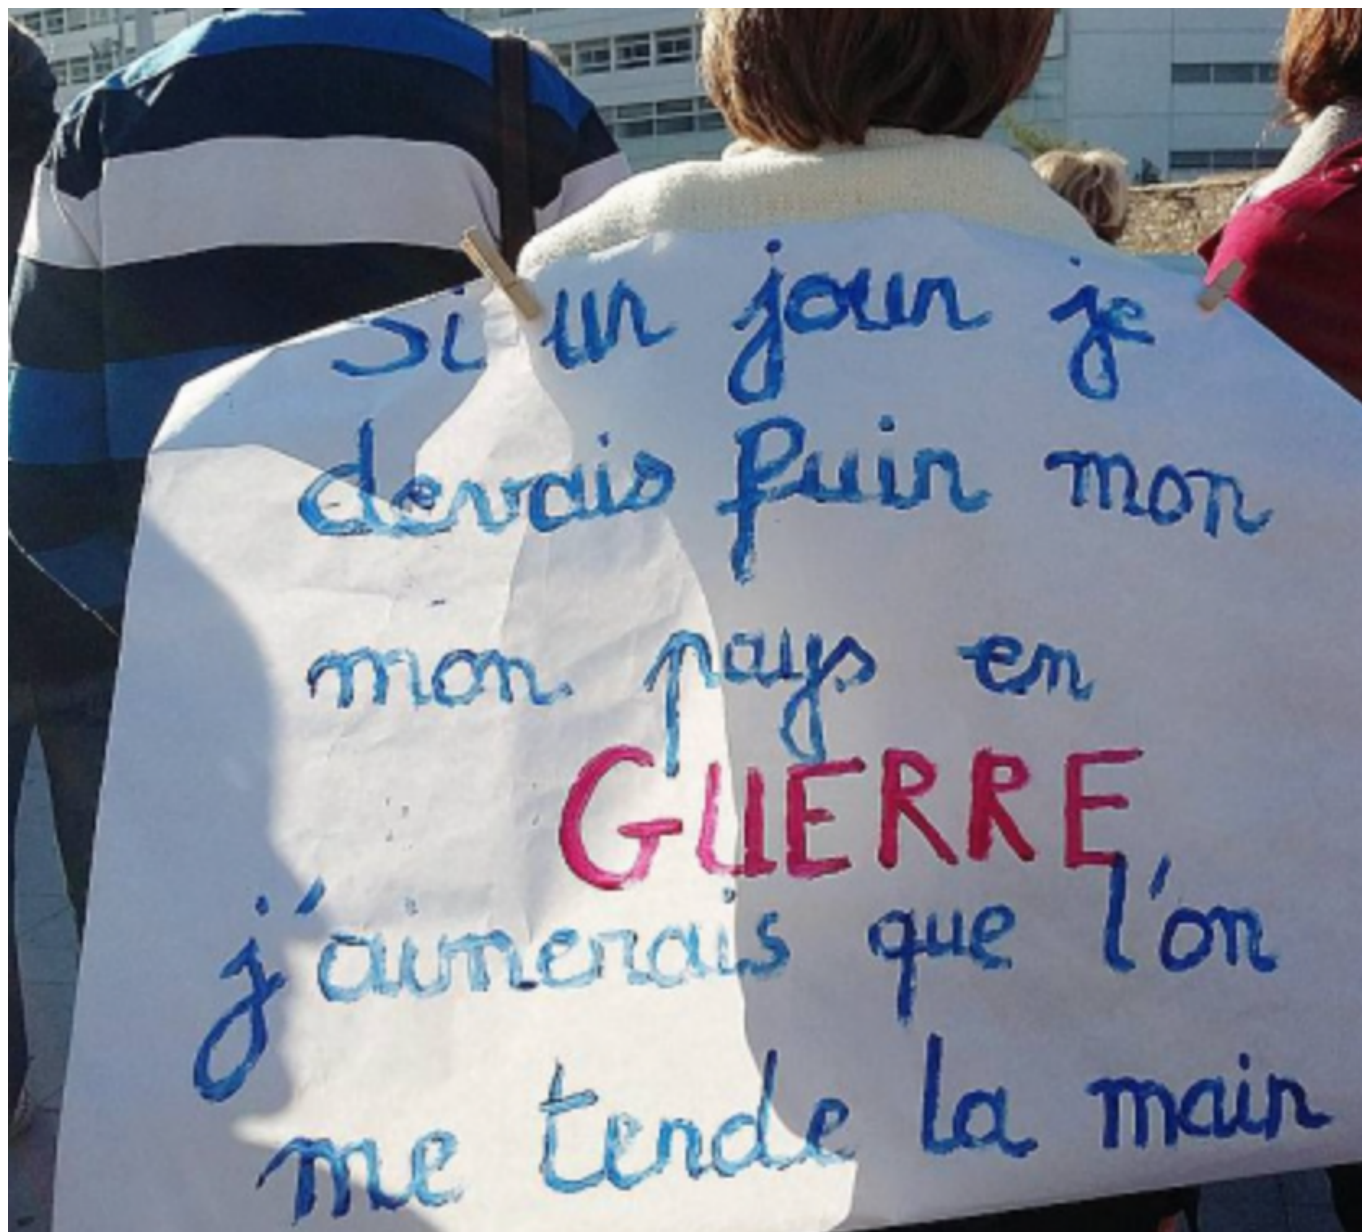 Si un jour je
devais fuir mon
mon pays en
GUERRE
j'aimerais que l'on
me tende la main